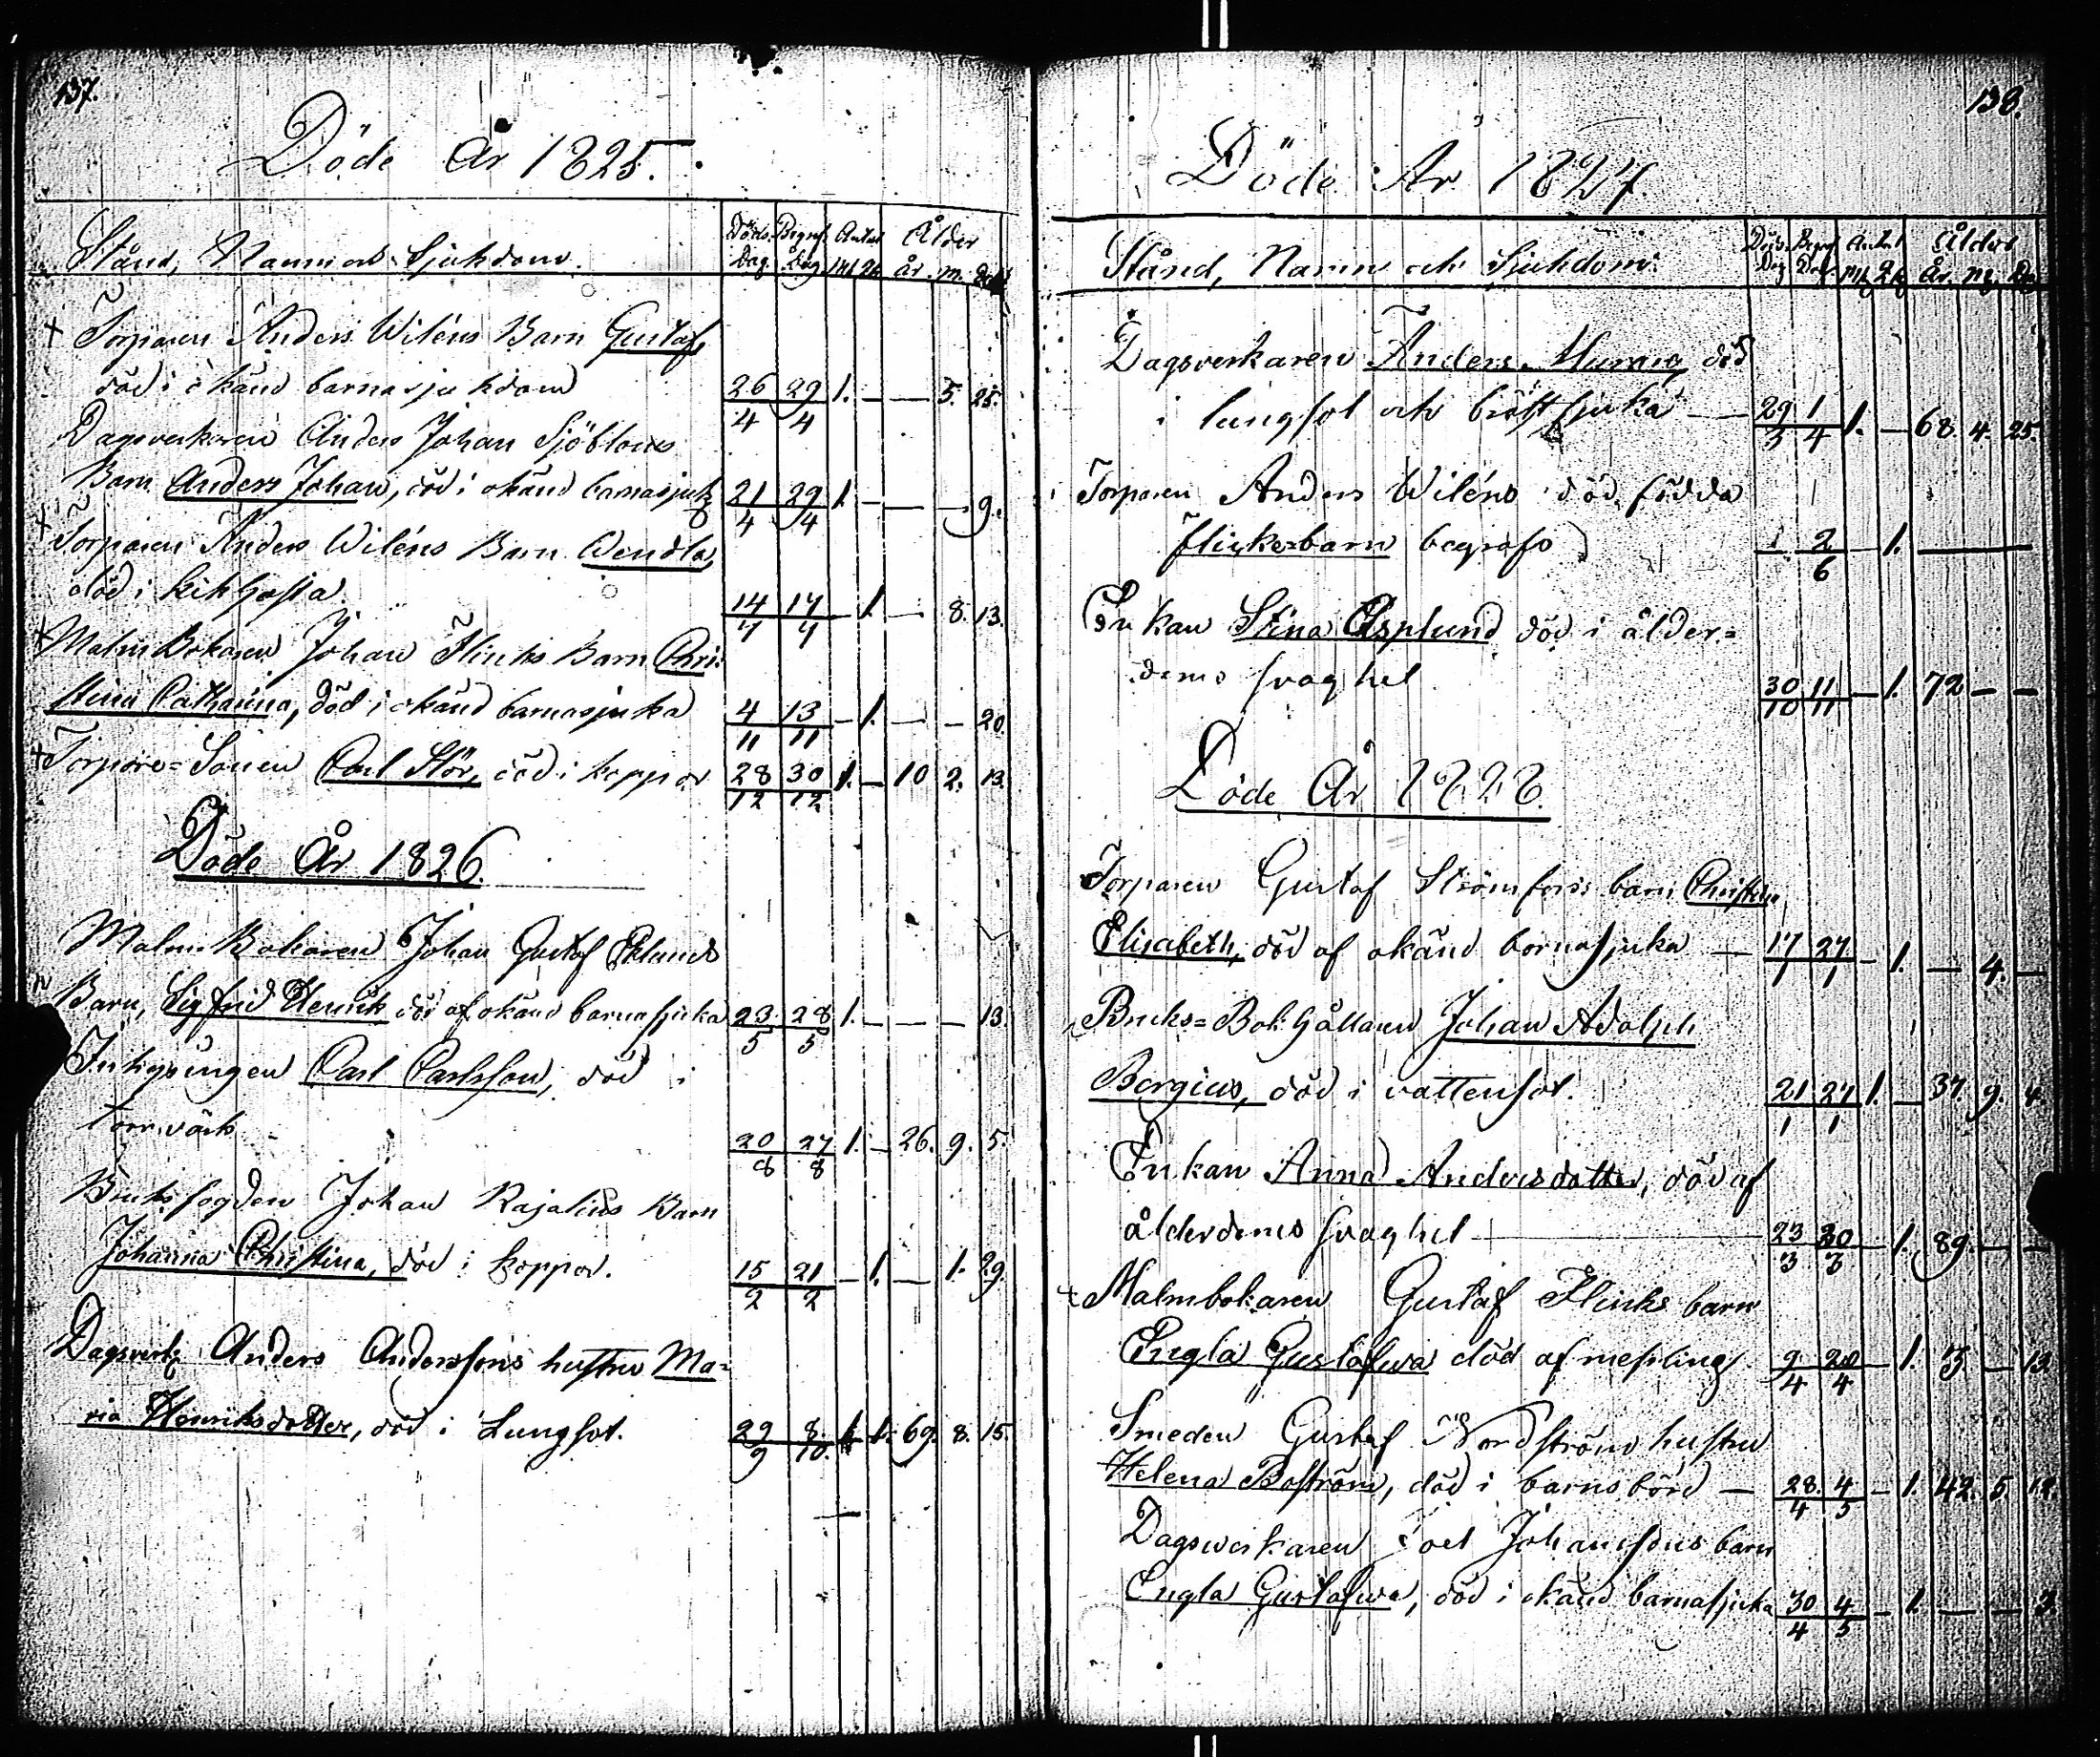 137.
Döde År 1825.
Stånd, Namn och Sjukdom. Döds Dag Begrafn. Dag Antal Mk Qk Ålder år. m. Dag
Torparen Anders Wiléns Barn Gustaf,
död i okänd barnasjukdom 26/4 29/4 1. — — 5. 25.
Dagsverkaren Anders Johan Sjöbloms
Barn Anders Johan, död i okänd barnasjuk 21/4 29/4 1. — — — 9.
Torparen Anders Wiléns Barn Wendla,
död i kikhosta. 14/7 17/7 — 1. — 8. 13.
Malmbokaren Johan Flinks Barn Chri-
stina Catharina, död i okänd barnasjuka 4/11 13/11 — 1. — — 20.
Torpare-Sonen Carl Stör, död i koppor 28/12 30/12 1. — 10 2. 13.
Döde År 1826.
Malm Bokaren Johan Gustaf Eklunds
Barn, Sigfrid Henrik död af okänd barnasjuka 23/5 28/5 1. — — — 13.
Inhysingen Carl Carlsson, död i
torrvärk 20/8 27/8 1. — 26. 9. 5.
Bruksfogden Johan Rajalins Barn
Johanna Christina, död i koppor. 15/2 21/2 — 1. — 1. 29.
Dagsverk. Anders Anderssons hustru Ma-
ria Henriksdotter, död i Lungsot. 29/9 8/10 1. 69. 8. 15.
138.
Döde År 1827.
Stånd, Namn och Sjukdom. Döds Dag Begraf Dag Antal Mk Qk Ålder År. M. Da
Dagsverkaren Anders Murmig, död
i lungsot och bröstsjuka — 29/3 1/4 1. — 68. 4. 25.
Torparen Anders Wiléns död födda
flickebarn begrofs 2/6 — 1. —
Enkan Stina Asplund död i ålder-
doms svaghet 30/10 11/11 — 1. 72 — —
Döde År 1828.
Torparen Gustaf Strömfors barn Christina
Elisabeth, död af okänd barnasjuka — 17/1 27/1 — 1. — 4. —
Bruks-Bokhållaren Johan Adolph
Bergius, död i vattensot. 21/1 27/1 1. — 37. 9. 4.
Enkan Anna Andersdotter, död af
ålderdoms svaghet — 23/3 30/3 — 1. 89. — —
Malmbokaren Gustaf Flinks barn
Engla Gustafwa död af messling 9/4 20/4 — 1. 3. — 12
Smeden Gustaf Nordströms hustru
Helena Boström, död i barnsbörd — 28/4 4/5 — 1. 42. 5 12.
Dagsverkaren Joel Johanssons barn
Engla Gustafwa, död i okänd barnasjuka 30/4 4/5 — 1. — — 3.